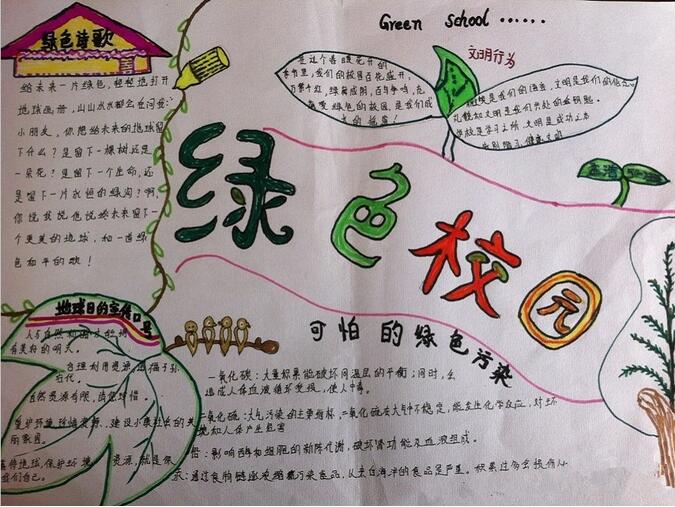 Green School ......
绿色诗歌
给未来一片绿色,轻轻地打开
地球画册,山山水水都会问我:
小朋友,你想给未来的地球留
下什么?是留下一棵树还是
一朵花?是留下一个生命,还
是留下一片永恒的绿洲?啊,
你说我说他说给未来留下一
个更美的地球,和一首绿
色和平的歌!
文明行为
在这个春暖花开的
季节里,我们的校园百花盛开,
万紫千红,绿树成荫,百鸟争鸣,
绿色的校园,是我们成
是我们的语言,文明是我们的信念。
礼貌和文明是我们共处的金钥匙。
学校是学习之所,文明是成功之本
绿色校园
地球日的宣传口号
人与自然
有美好的明天。
合理利用资源,造福子孙
后代。
自然资源有限,
爱护环境
丽家园。
善待地球,保护环境
资源,就是保
我们自己。
可怕的绿色污染
一氧化碳:大量积累能破坏同温层的平衡;同时,会
造成人体血液循环受损,使人中毒。
二氧化硫:大气污染的主要指标,二氧化硫在大气中不稳定,能发生化学反应,对环
境和人体产生危害
铅:影响酶和细胞的新陈代谢,破坏肾功能及血液组成。
汞:通过食物链逐级浓缩污染食品,从来自海洋的食品是严重。积累过份会损伤人